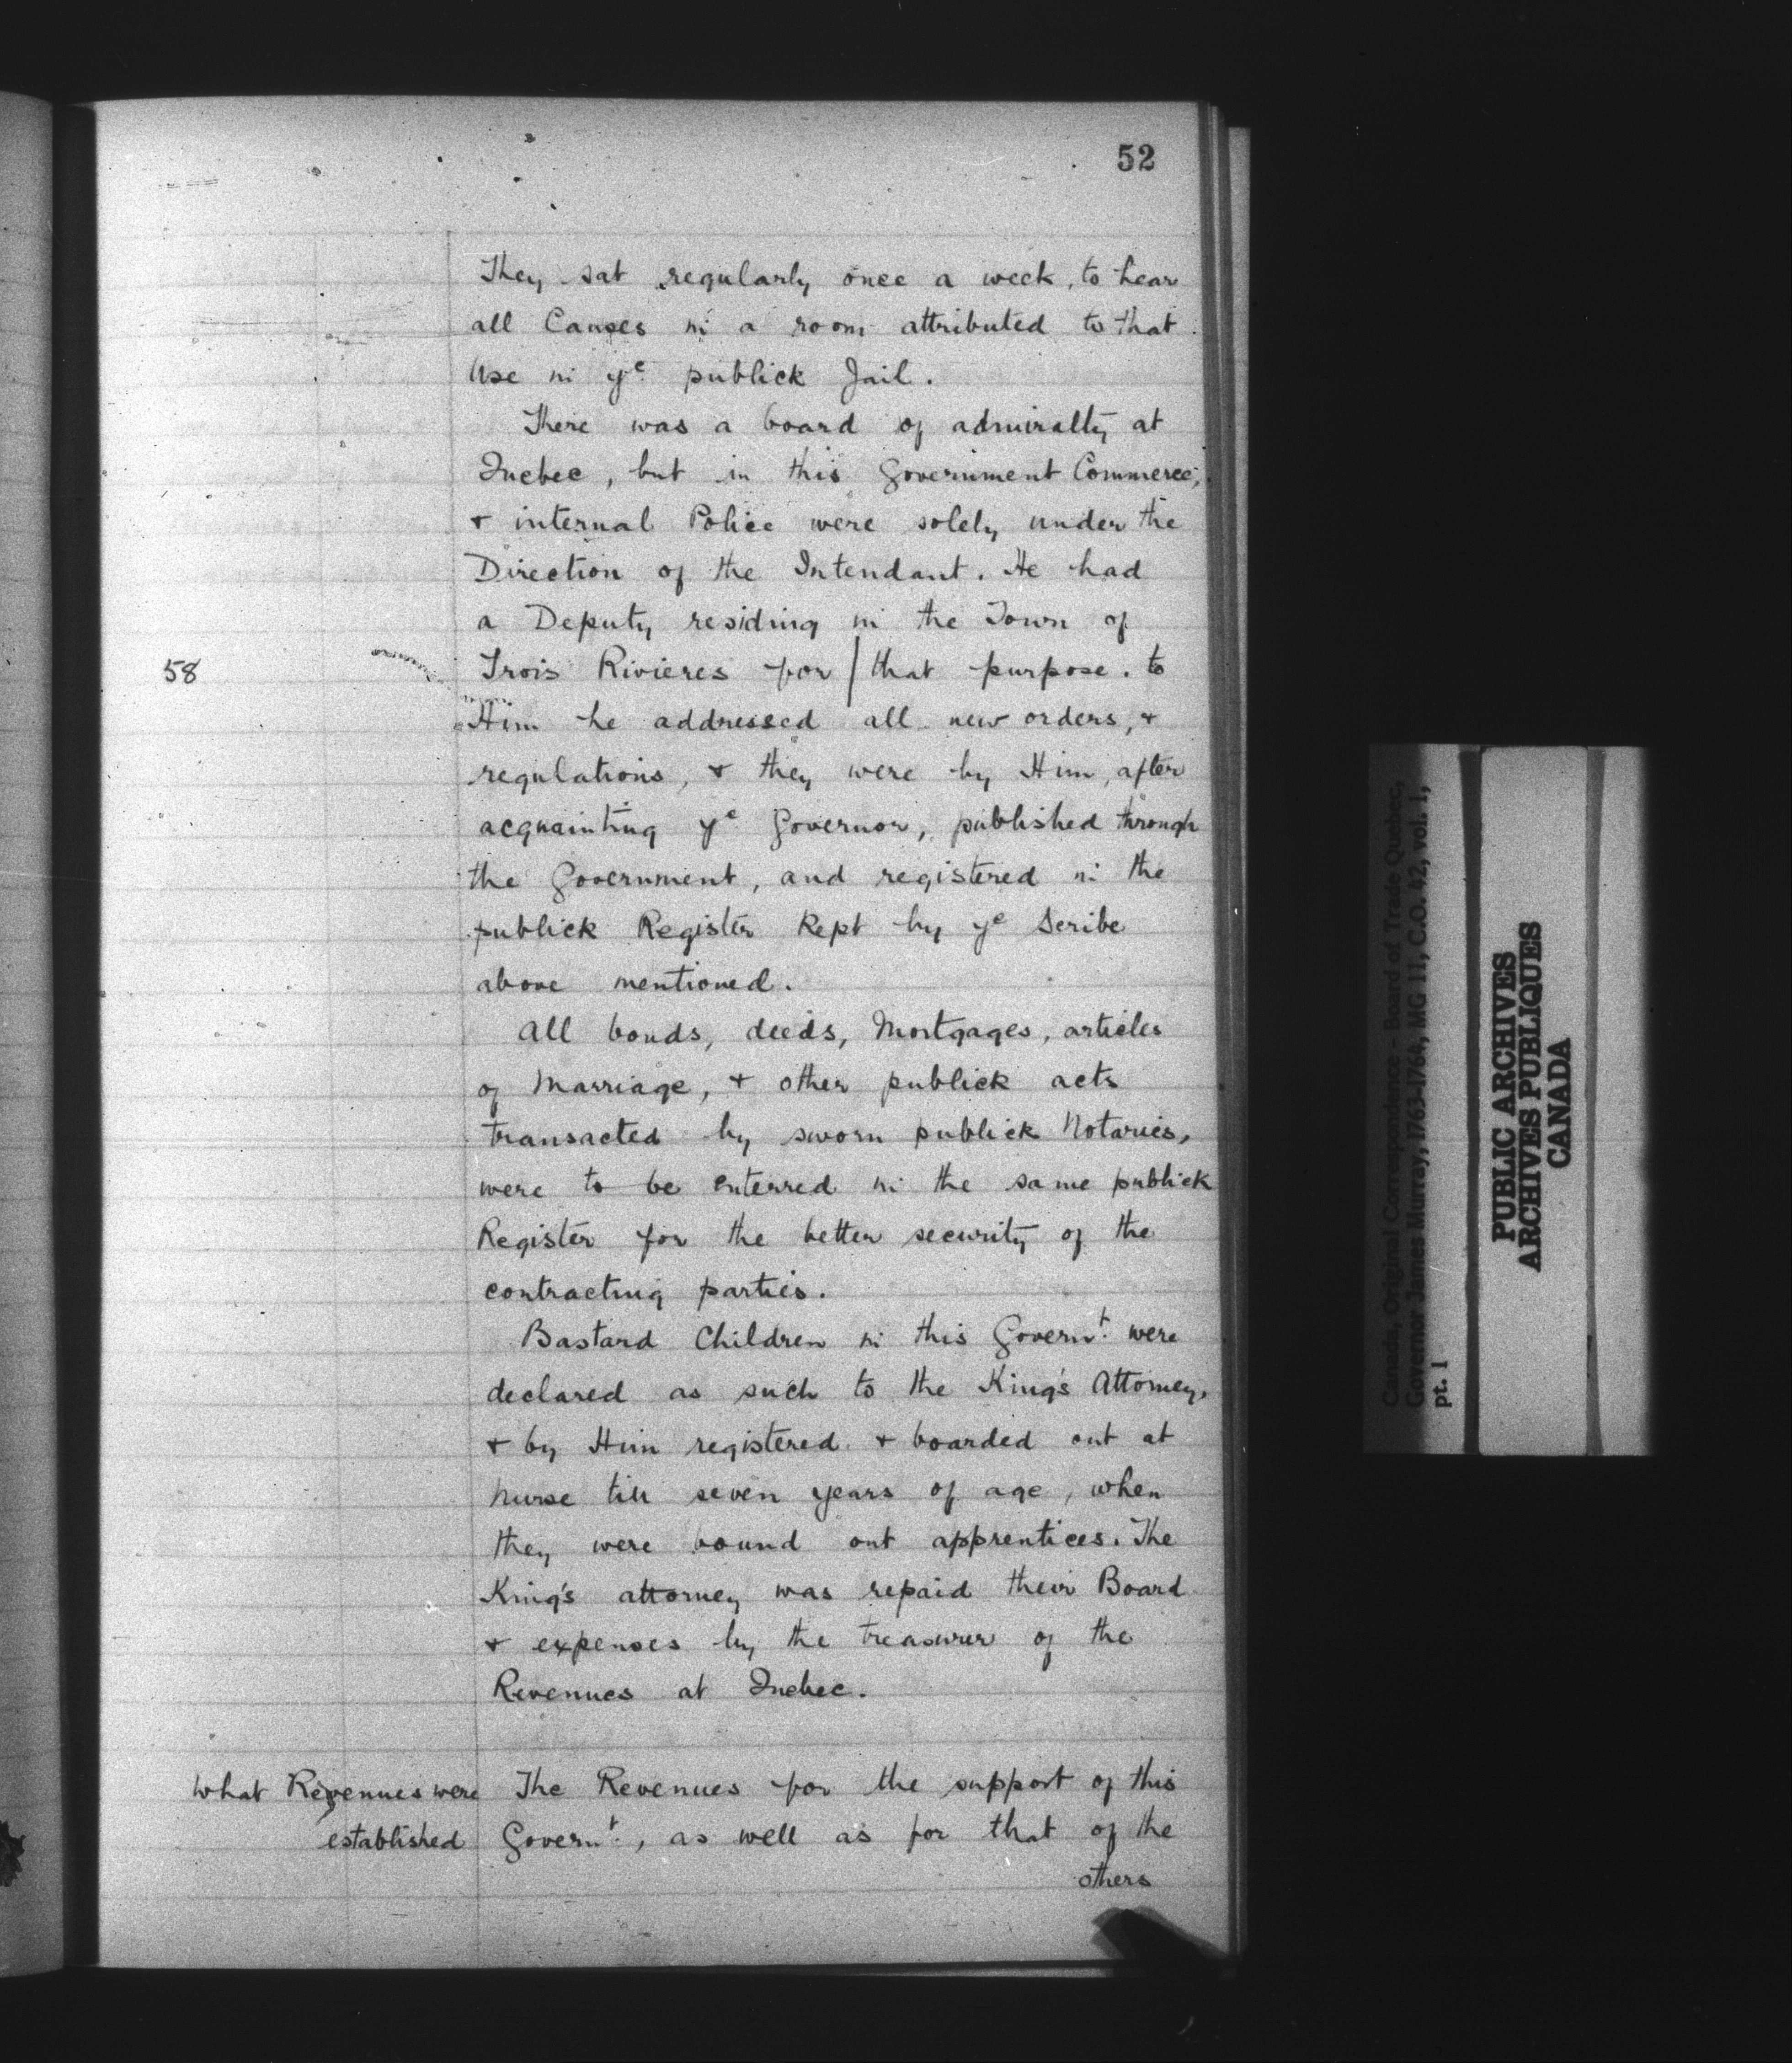 52
They sat regularly once a week, to hear
all Causes in a room attributed to that
Use in yᵉ publick Jail.
There was a board of admiralty at
Quebec, but in this Government Commerce,
& internal Police were solely under the
Direction of the Intendant. He had
a Deputy residing in the Town of
58
Trois Rivieres for / that purpose. to
Him he addressed all new orders, &
regulations, & they were by Him, after
acquainting yᵉ Governor, published through
the Government, and registered in the
publick Register Kept by yᵉ Scribe
above mentioned.
All bonds, deeds, Mortgages, articles
of Marriage, & other publick acts
transacted by sworn publick Notaries,
were to be enterred in the same publick
Register for the better security of the
contracting parties.
Bastard Children in this Governᵗ. were
declared as such to the King's Attorney,
& by Him registered & boarded out at
nurse till seven years of age, when
they were bound out apprentices. The
King's attorney was repaid their Board
& expenses by the treasurer of the
Revenues at Quebec.
What Revenues were
established
The Revenues for the support of this
Governᵗ., as well as for that of the
others
Canada, Original Correspondence - Board of Trade Quebec,
Governor James Murray, 1763-1764, MG 11, C.O. 42, vol. 1,
pt. 1
PUBLIC ARCHIVES
ARCHIVES PUBLIQUES
CANADA